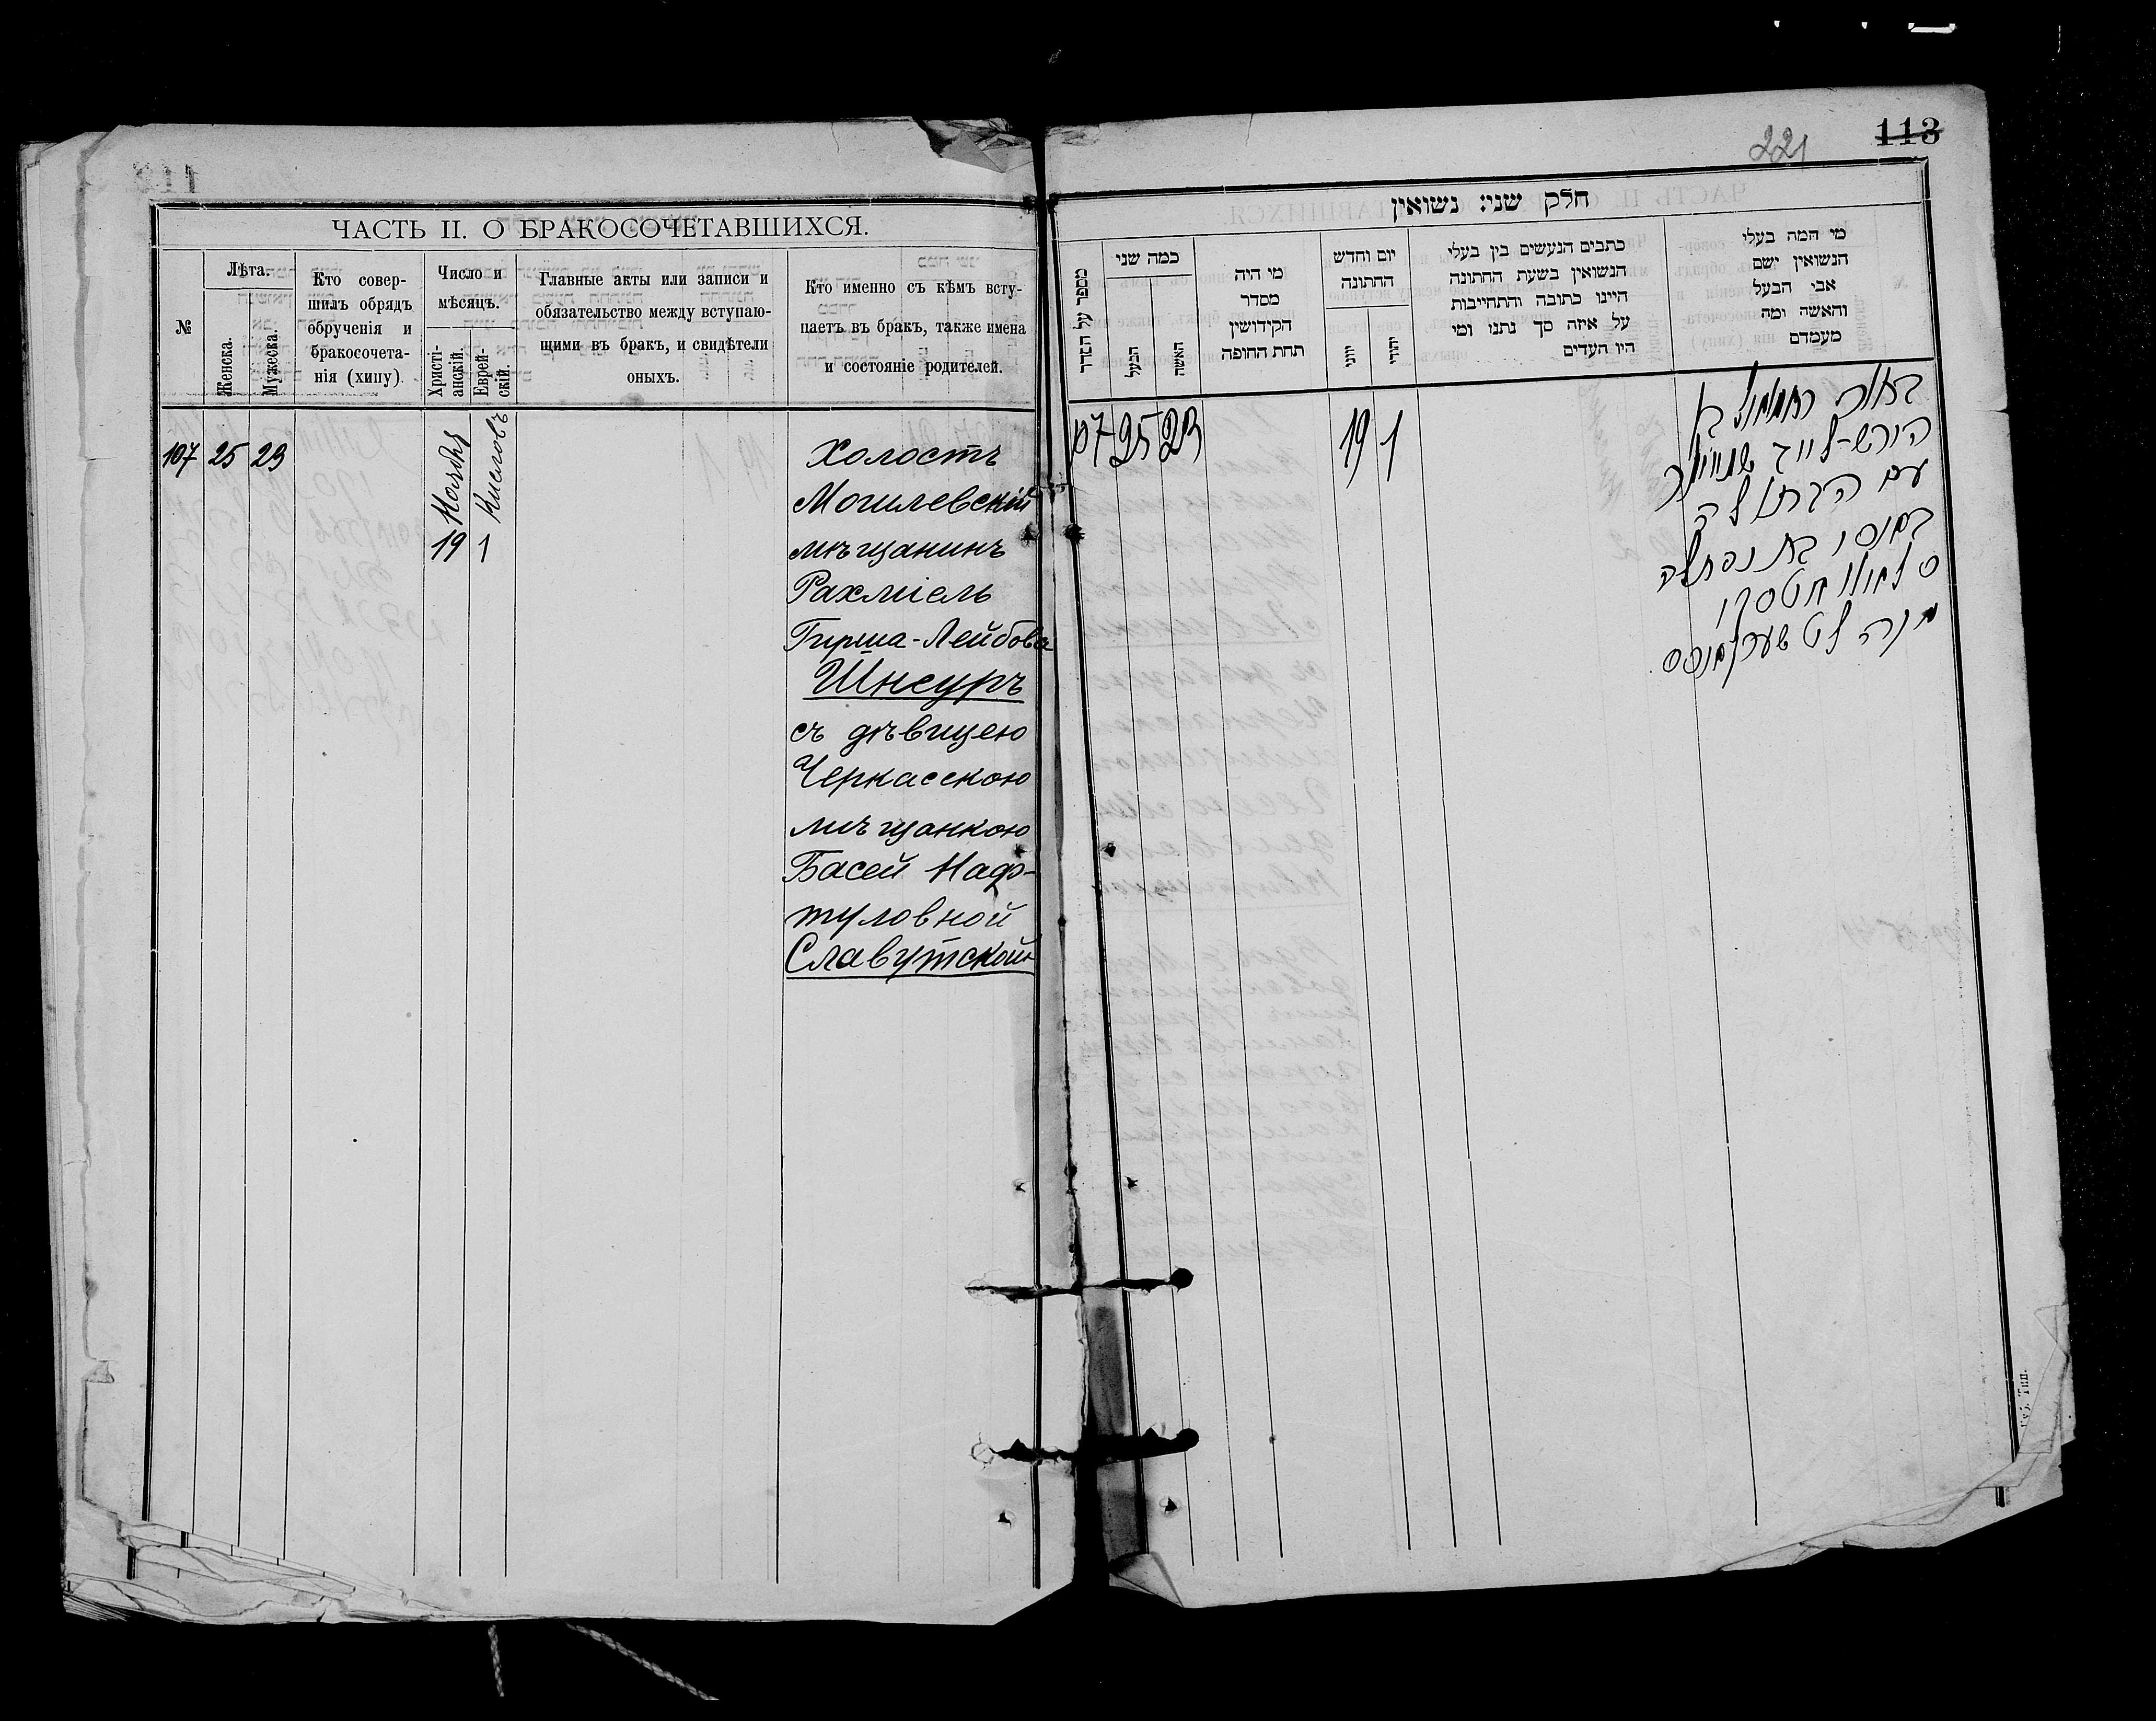 ЧАСТЬ II. О БРАКОСОЧЕТАВШИХСЯ.
№
Лѣта.
Женска.
Мужеска.
Кто совер-
шилъ обрядъ
обрученія и
бракосочета-
нія (хипу).
Число и
мѣсяцъ.
Христі-
анскій.
Еврей-
скій.
Главные акты или записи и
обязательство между вступаю-
щими въ бракъ, и свидѣтели
оныхъ.
Кто именно съ кѣмъ всту-
паетъ въ бракъ, также имена
и состояніе родителей.
107 25 23
Ноября
19
Кислевъ
1
Холостъ
Могилевскій
мѣщанинъ
Рахміель
Гирша-Лейбовъ
Шнеуръ
съ дѣвицею
Черкасскою
мѣщанкою
Басей Наф-
туловной
Славутской
221
113
חלק שני: נשואין
מספר על הסדר
כמה שני
הבעל
האשה
מי היה
מסדר
הקידושין
תחת החופה
יום וחדש
החתונה
יוני
יהודי
כתבים הנעשים בין בעלי
הנשואין בשעת החתונה
היינו כתובה והתחייבות
על איזה סך נתנו ומי
היו העדים
מי המה בעלי
הנשואין ושם
אבי הבעל
והאשה ומה
מעמדם
107 25 23
19 1
הירש-לייב
עם הבתולה
בת נפתלה